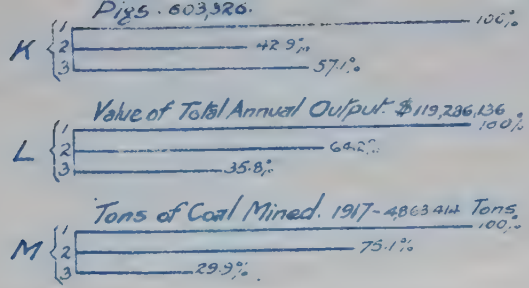 Pigs. 603,326.
K { 1 100%
2 42.9%
3 57.1%
Value of Total Annual Output. $119,286,136
L { 1 100%
2 64.2%
3 35.8%
Tons of Coal Mined. 1917-4863414 Tons
M { 1 100%
2 75.1%
3 29.9%